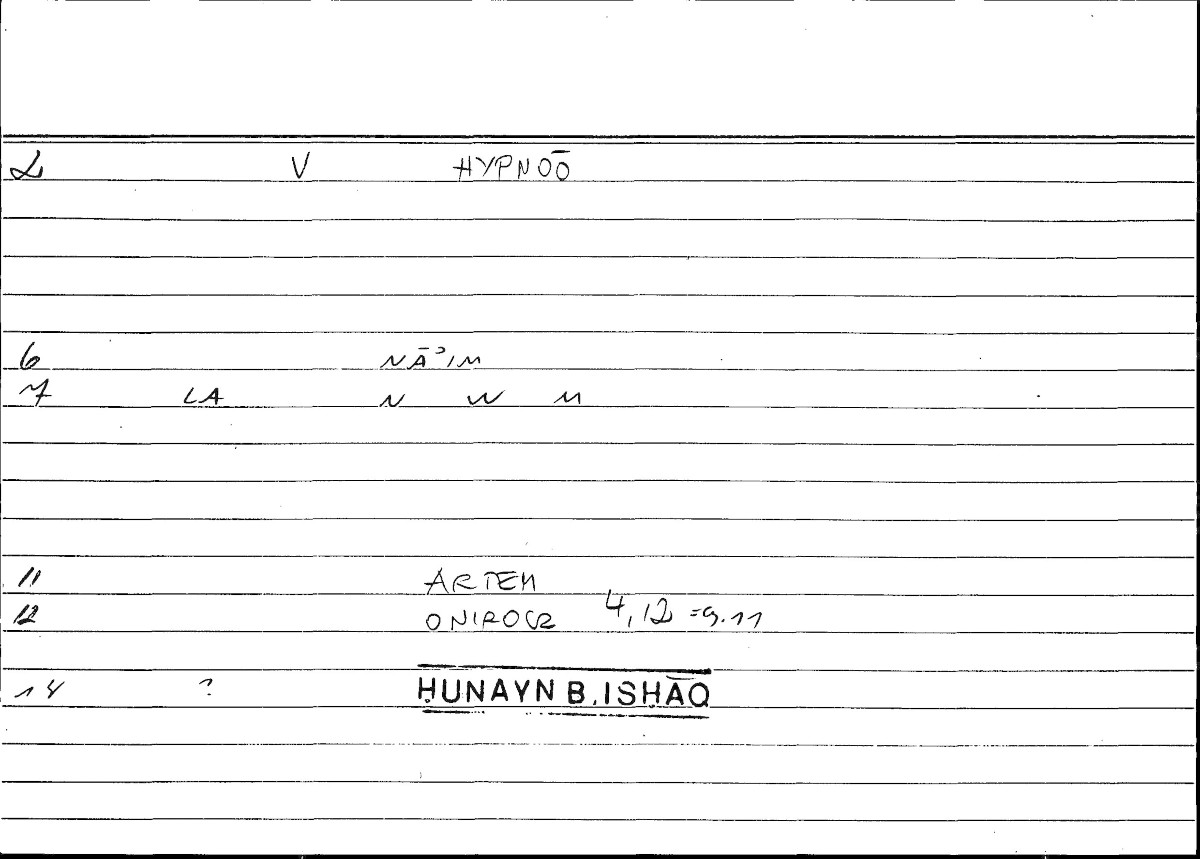 2 V HYPNOŌ
6 NĀʾIM
7 LA N W M
11 ARTEM
12 ONIROCR 4,12 =9.11
14 ? ḤUNAYN B. ISḤĀQ